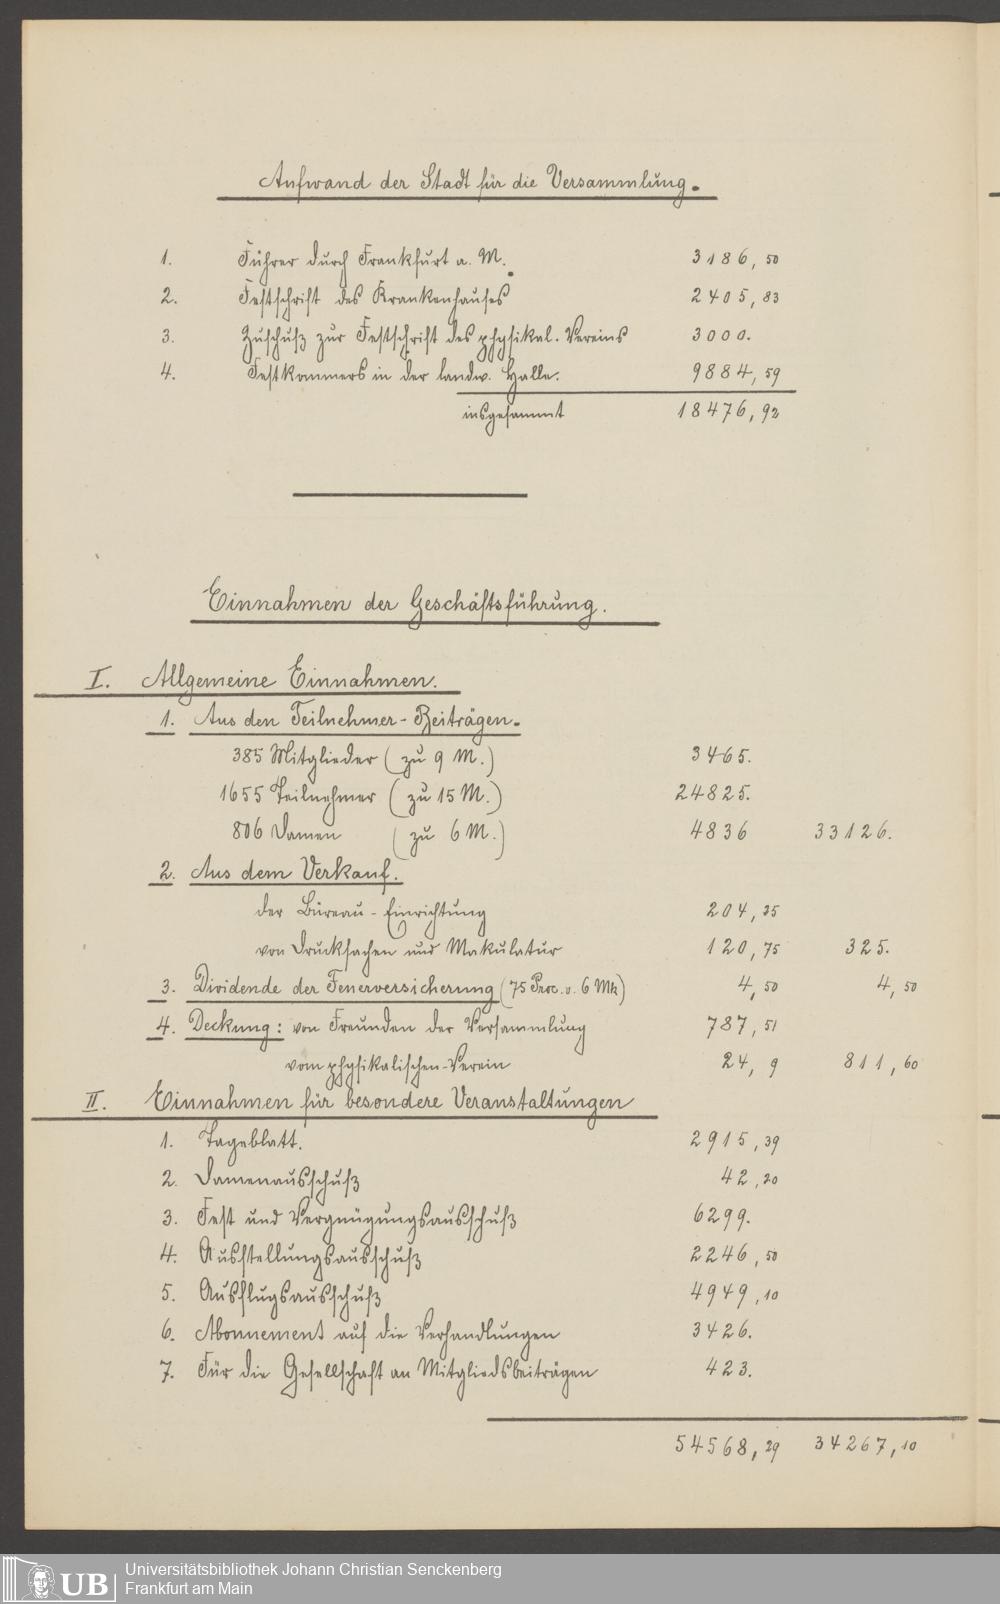 Aufwand der Stadt für die Versammlung.
1. Führer durch Frankfurt a. M. 3186,50
2. Festschrift des Krankenhauses 2405,83
3. Zuschuß zur Festschrift des physikal. Vereins 3000.
4. Festkommers in der landw. Halle. 9884,59
insgesammt 18476,92
Einnahmen der Geschäftsführung.
I. Allgemeine Einnahmen.
1. Aus den Teilnehmer-Beiträgen.
385 Mitglieder (zu 9 M.) 3465.
1655 Teilnehmer (zu 15 M.) 24825.
806 Damen (zu 6 M.) 4836 33126.
2. Aus dem Verkauf.
der Büreau-Einrichtung 204,25
von Drucksachen und Makulatur 120,75 325.
3. Dividende der Feuerversicherung (75 Proc. v. 6 Mk) 4,50 4,50
4. Deckung: von Freunden der Versammlung 787,51
vom physikalischen-Verein 24,9 811,60
II. Einnahmen für besondere Veranstaltungen
1. Tageblatt. 2915,39
2. Damenausschuß 42,20
3. Fest und Vergnügungsausschuß 6299.
4. Ausstellungsausschuß 2246,50
5. Ausflugsausschuß 4949,10
6. Abonnement auf die Verhandlungen 3426.
7. Für die Gesellschaft an Mitgliedsbeiträgen 423.
54568,29 34267,10
UB Universitätsbibliothek Johann Christian Senckenberg
Frankfurt am Main